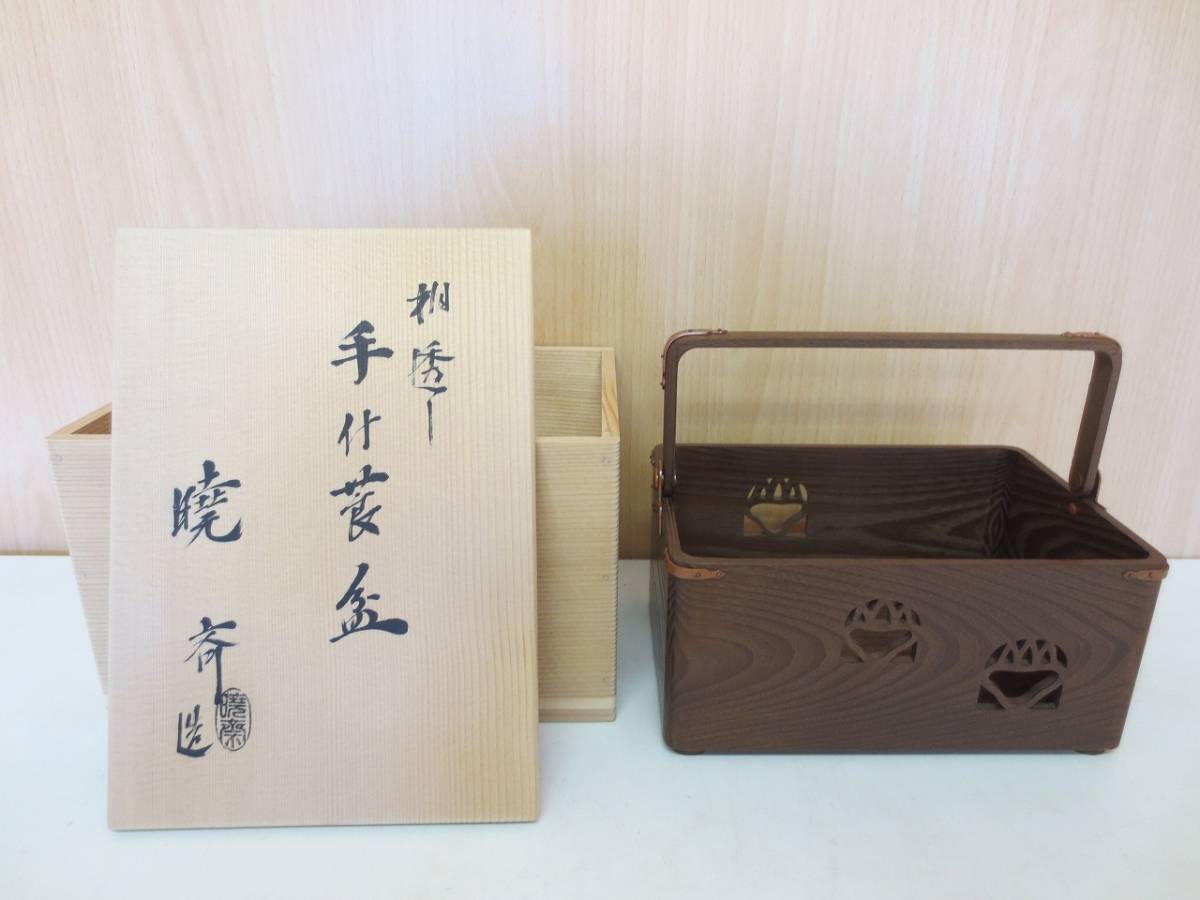 桐透し
手付莨盆
曉斎造
曉斎